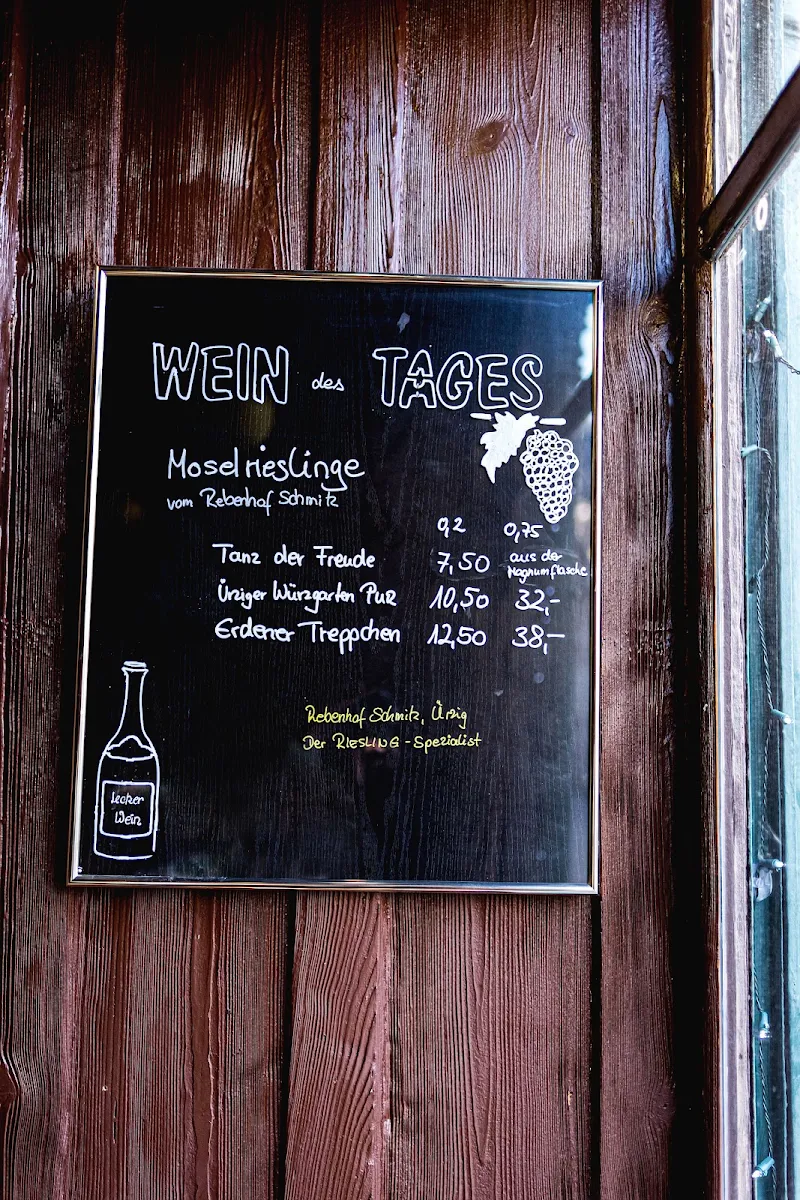 WEIN des TAGES
Moselrieslinge
vom Rebenhof Schmitz
0,2 0,75
Tanz der Freude 7,50 aus der Magnumflasche
Ürziger Würzgarten PUR 10,50 32,-
Erdener Treppchen 12,50 38,-
Rebenhof Schmitz, Ürzig
Der RIESLING-Spezialist
Lecker
Wein